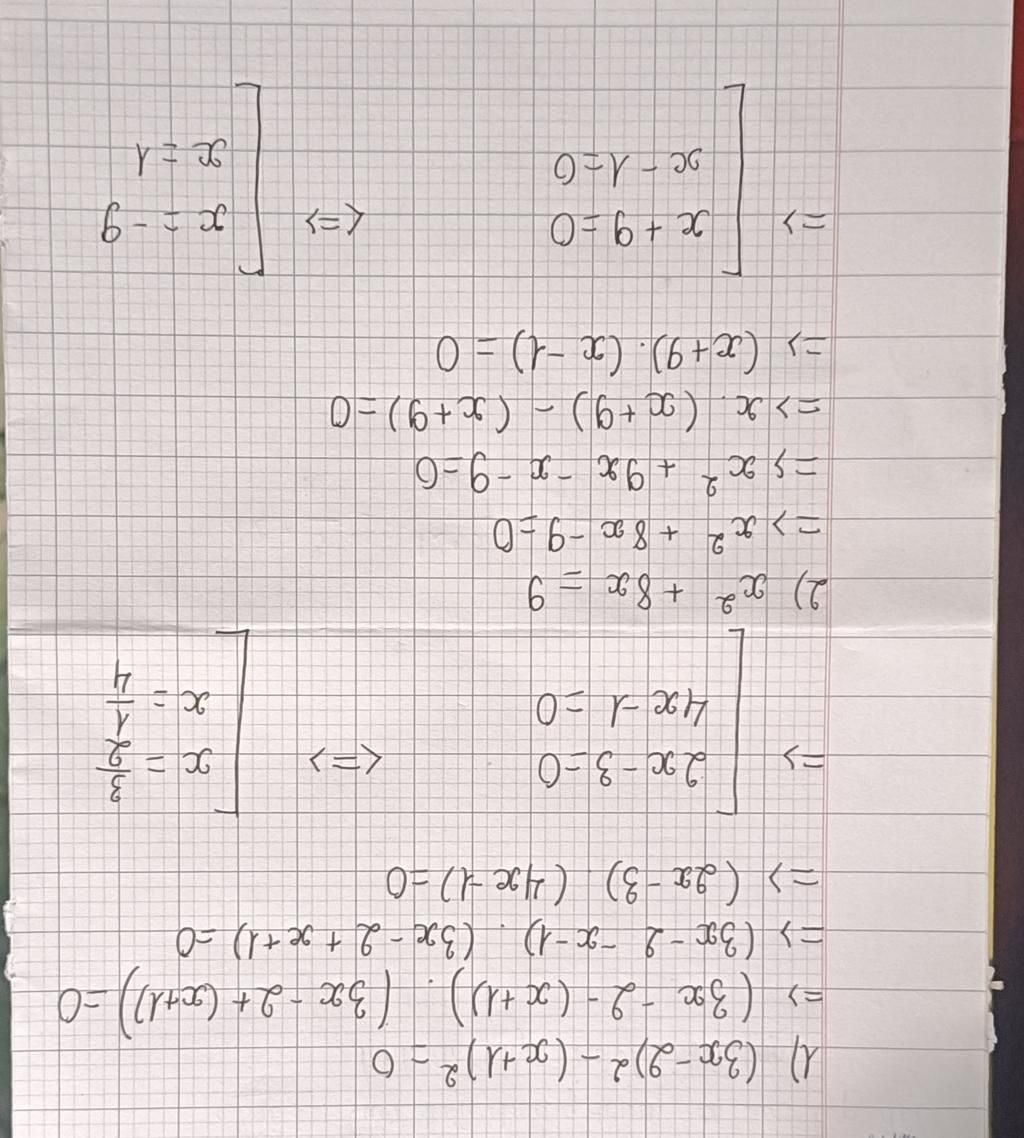 1) (3x-2)² - (x+1)² = 0
=> (3x - 2 - (x+1)). (3x - 2 + (x+1)) = 0
=> (3x - 2 - x - 1). (3x - 2 + x + 1) = 0
=> (2x - 3). (4x - 1) = 0
=> [ 2x - 3 = 0 <=> [ x = 3/2
4x - 1 = 0 x = 1/4
2) x² + 8x = 9
=> x² + 8x - 9 = 0
=> x² + 9x - x - 9 = 0
=> x. (x + 9) - (x + 9) = 0
=> (x + 9). (x - 1) = 0
=> [ x + 9 = 0 <=> [ x = - 9
x - 1 = 0 x = 1